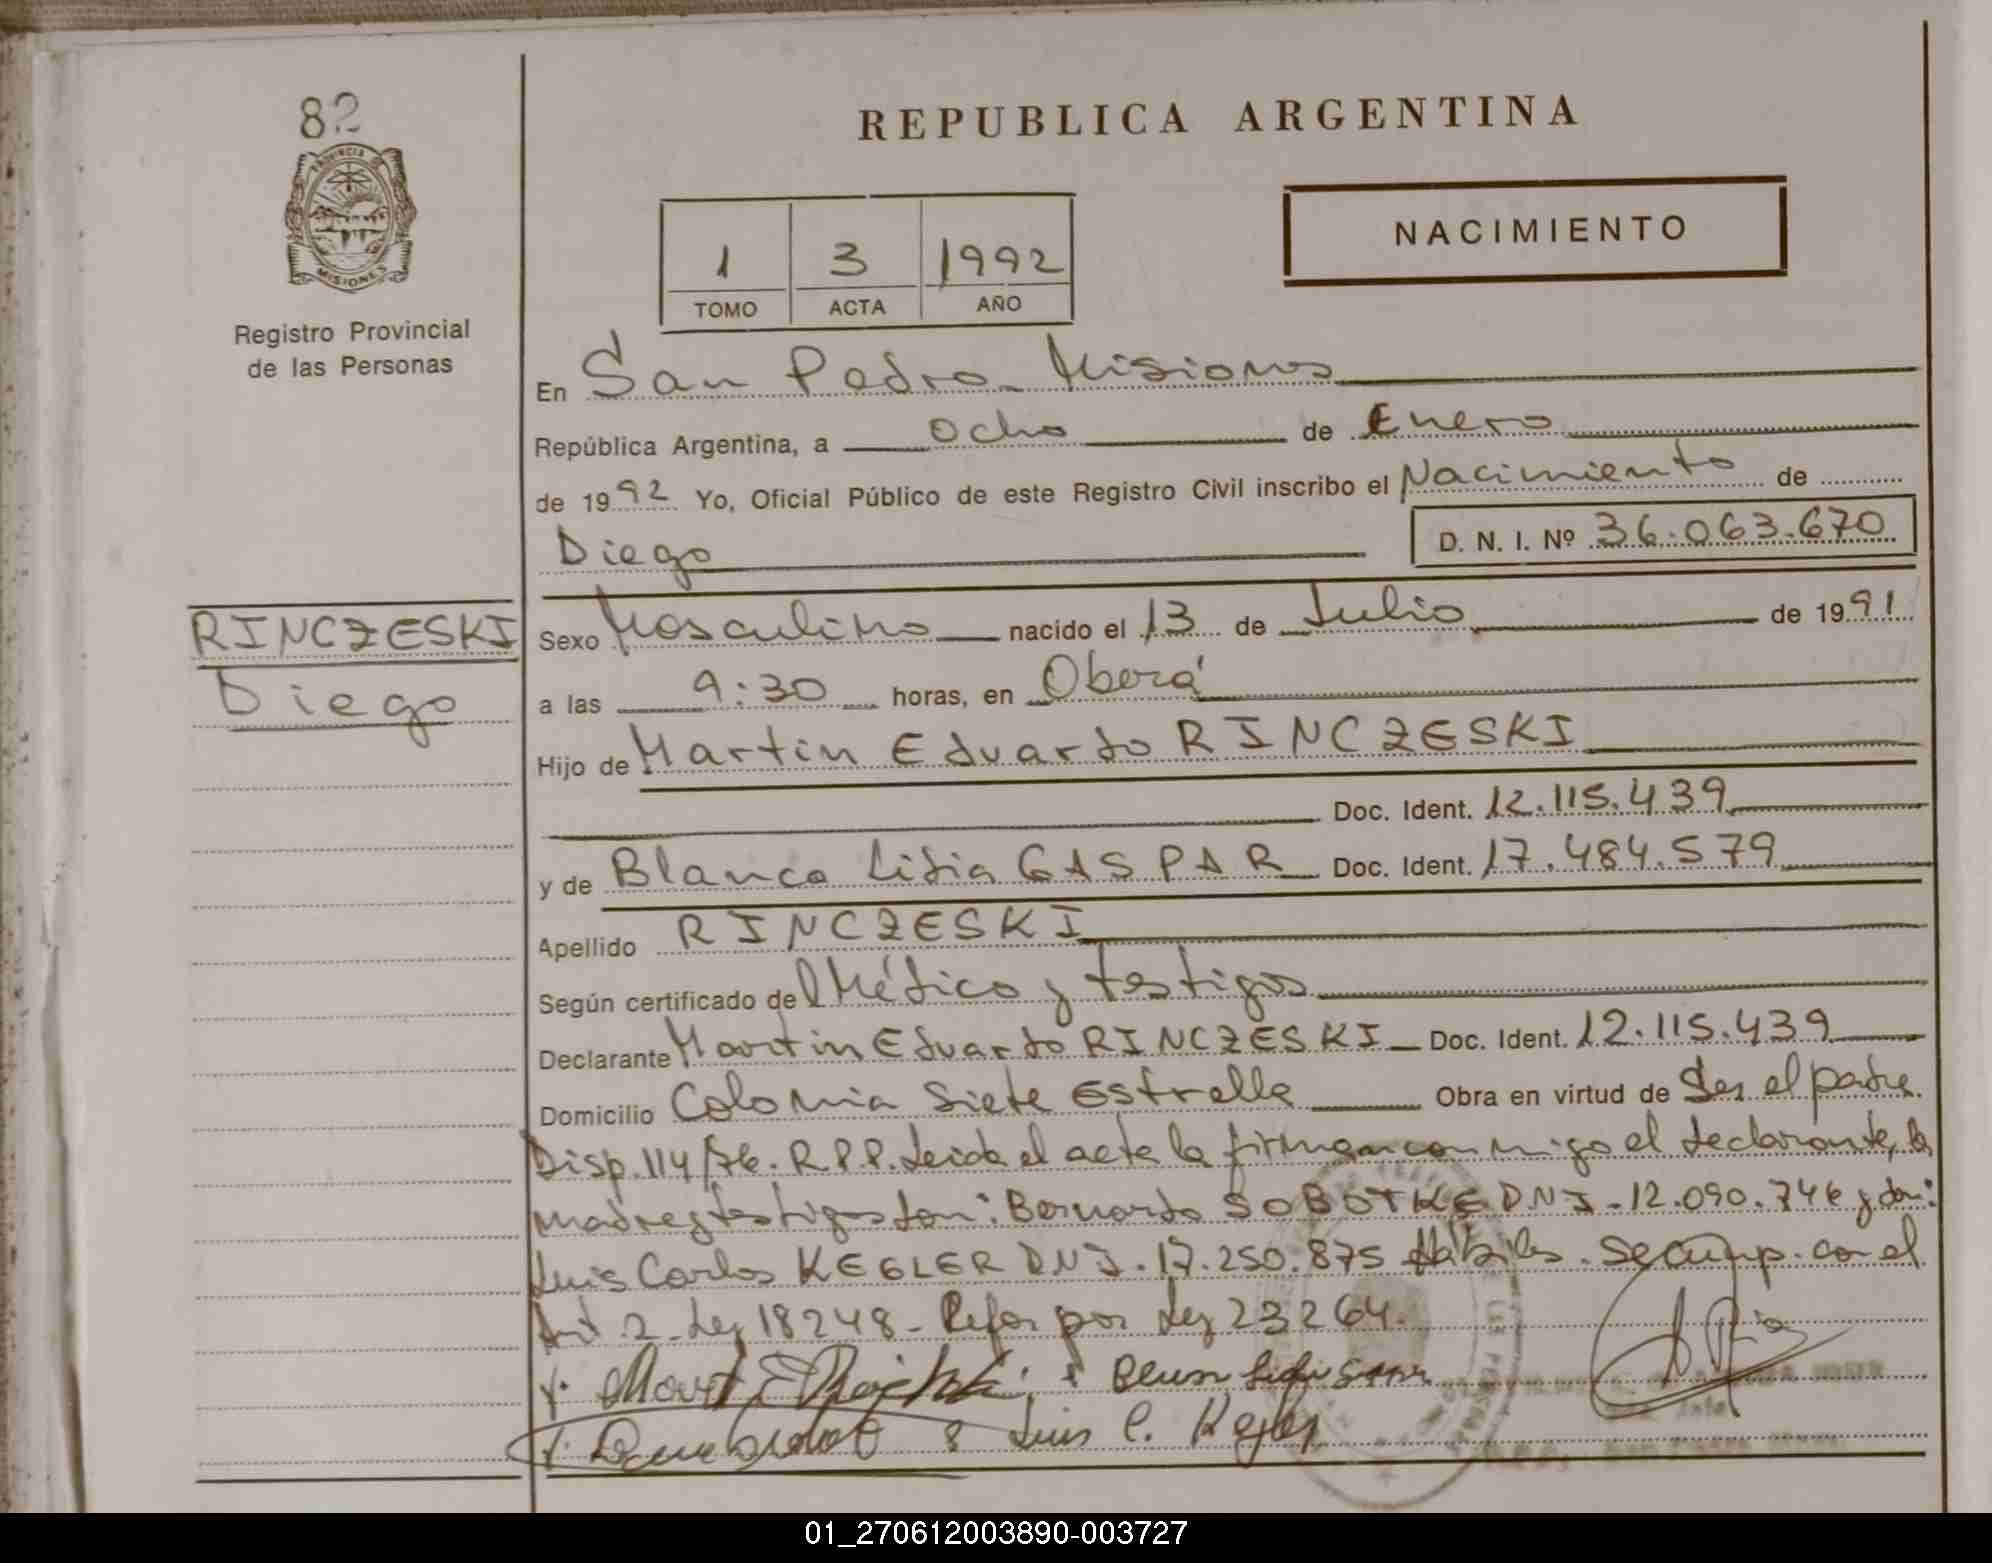 82
PROVINCIA DE
MISIONES
Registro Provincial
de las Personas
REPUBLICA ARGENTINA
NACIMIENTO
1 3 1992
TOMO ACTA AÑO
En San Pedro - Misiones
República Argentina, a ocho de Enero
de 1992 Yo, Oficial Público de este Registro Civil inscribo el Nacimiento de
Diego D. N. I. Nº 36.063.670
RINCZESKI
Diego
Sexo Masculino nacido el 13 de Julio de 1991
a las 9:30 horas, en Oberá
Hijo de Martin Eduardo RINCZESKI
Doc. Ident. 12.115.439
y de Blanca Lidia GASPAR Doc. Ident. 17.484.579
Apellido RINCZESKI
Según certificado del Médico y testigos
Declarante Martin Eduardo RINCZESKI Doc. Ident. 12.115.439
Domicilio Colonia Siete Estrella Obra en virtud de Ser el padre
Disp. 114/76. R.P.P. Leida el acta la firman conmigo el declarante, la
madre y testigos don: Bernardo SOBOTKE DNI. 12.090.746 y don:
Luis Carlos KEGLER DNI. 17.250.875 Hábiles. Se cump. con el
Art. 2 - Ley 18248 - Refor por Ley 23264.
Luis C. Kegler
01_270612003890-003727